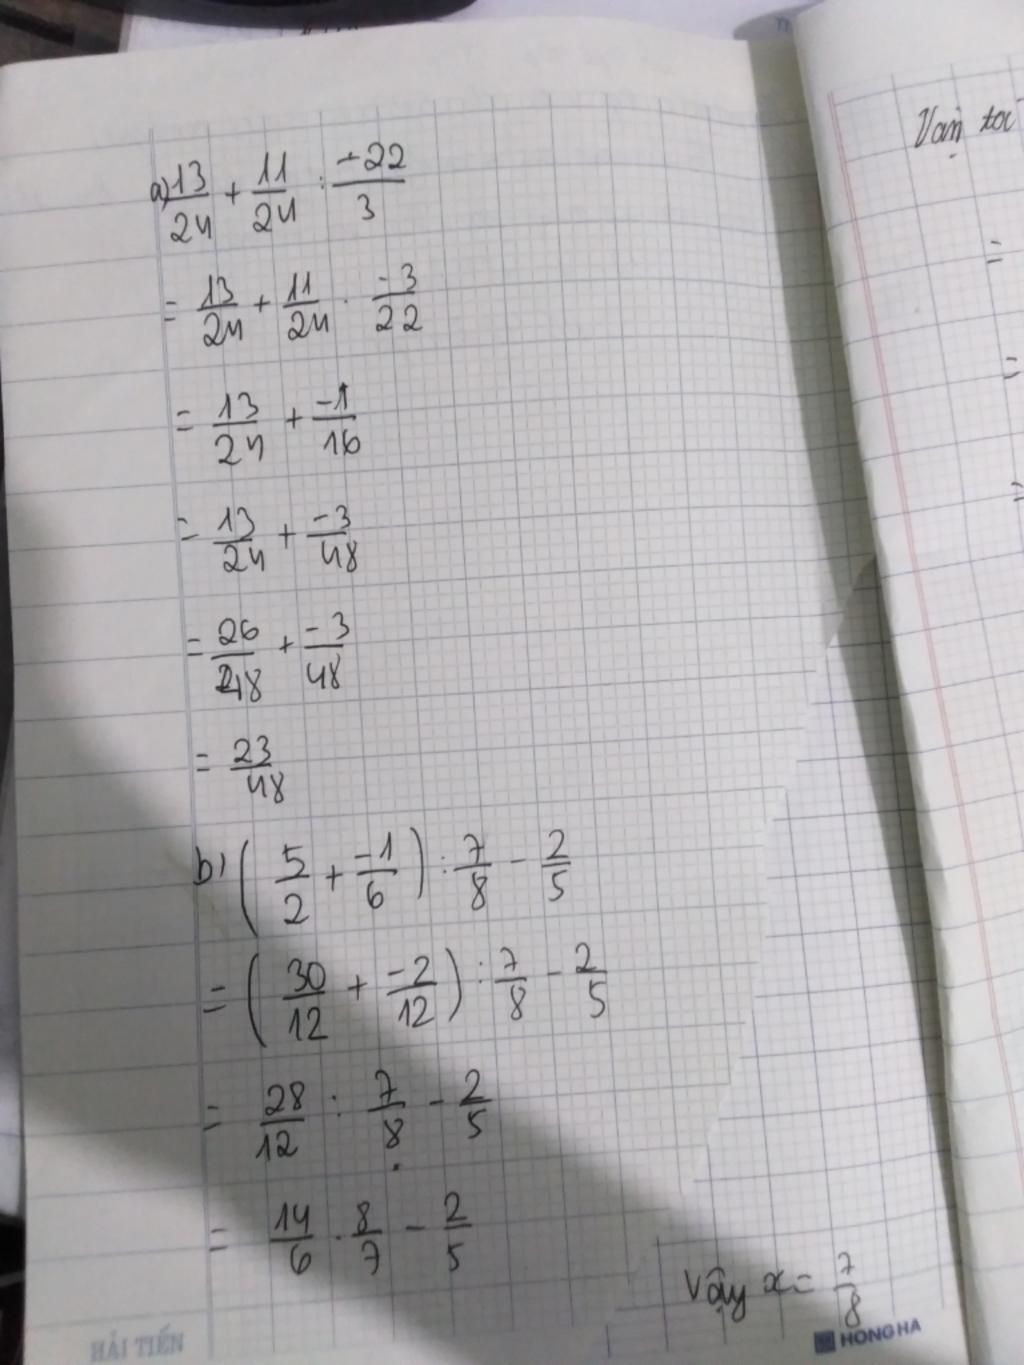 a) 13/24 + 11/24 : -22/3
= 13/24 + 11/24 . -3/22
= 13/24 + -1/16
= 13/24 + -3/48
= 26/48 + -3/48
= 23/48
b) (5/2 + -1/6) : 7/8 - 2/5
= (30/12 + -2/12) : 7/8 - 2/5
= 28/12 : 7/8 - 2/5
= 14/6 . 8/7 - 2/5
Vậy x = 7/8
HẢI TIẾN
HONG HA
Vận tốc
=
=
=